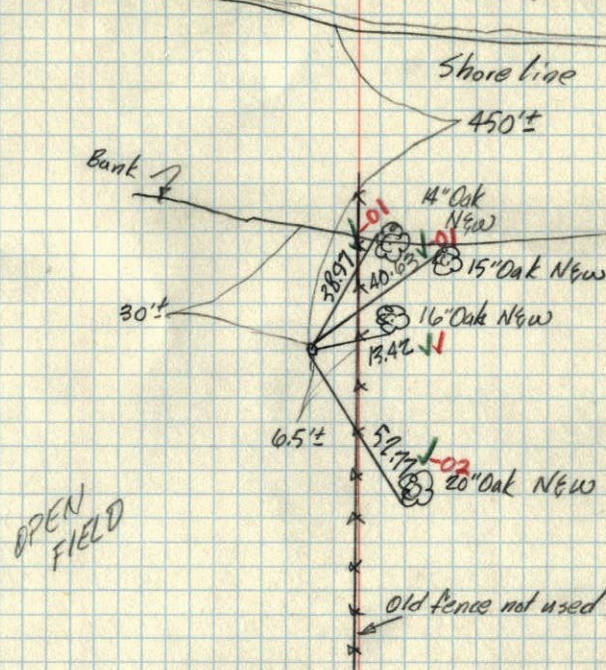 Shore line
450'±
Bank
14" Oak
NEW
-01
-01
38.97
40.63
15" Oak NEW
30'±
16" Oak NEW
13.42
6.5'±
52.77
-02
20" Oak NEW
OPEN
FIELD
Old fence not used